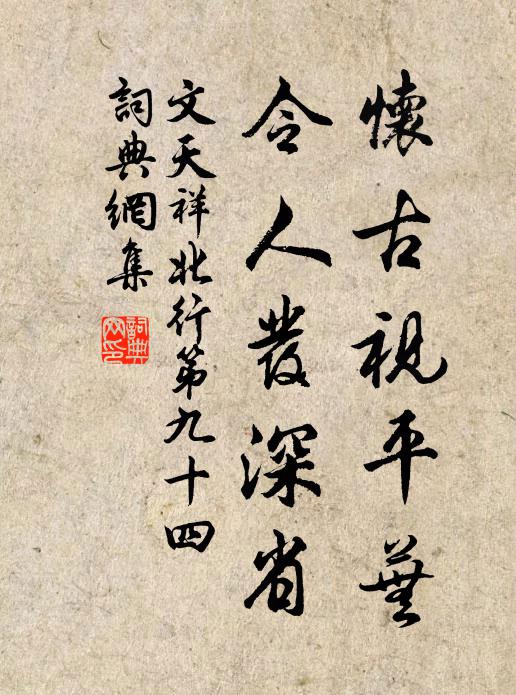 懷古視平蕪
令人發深省
文天祥北行第九十四
詞典網集
詞典
网印